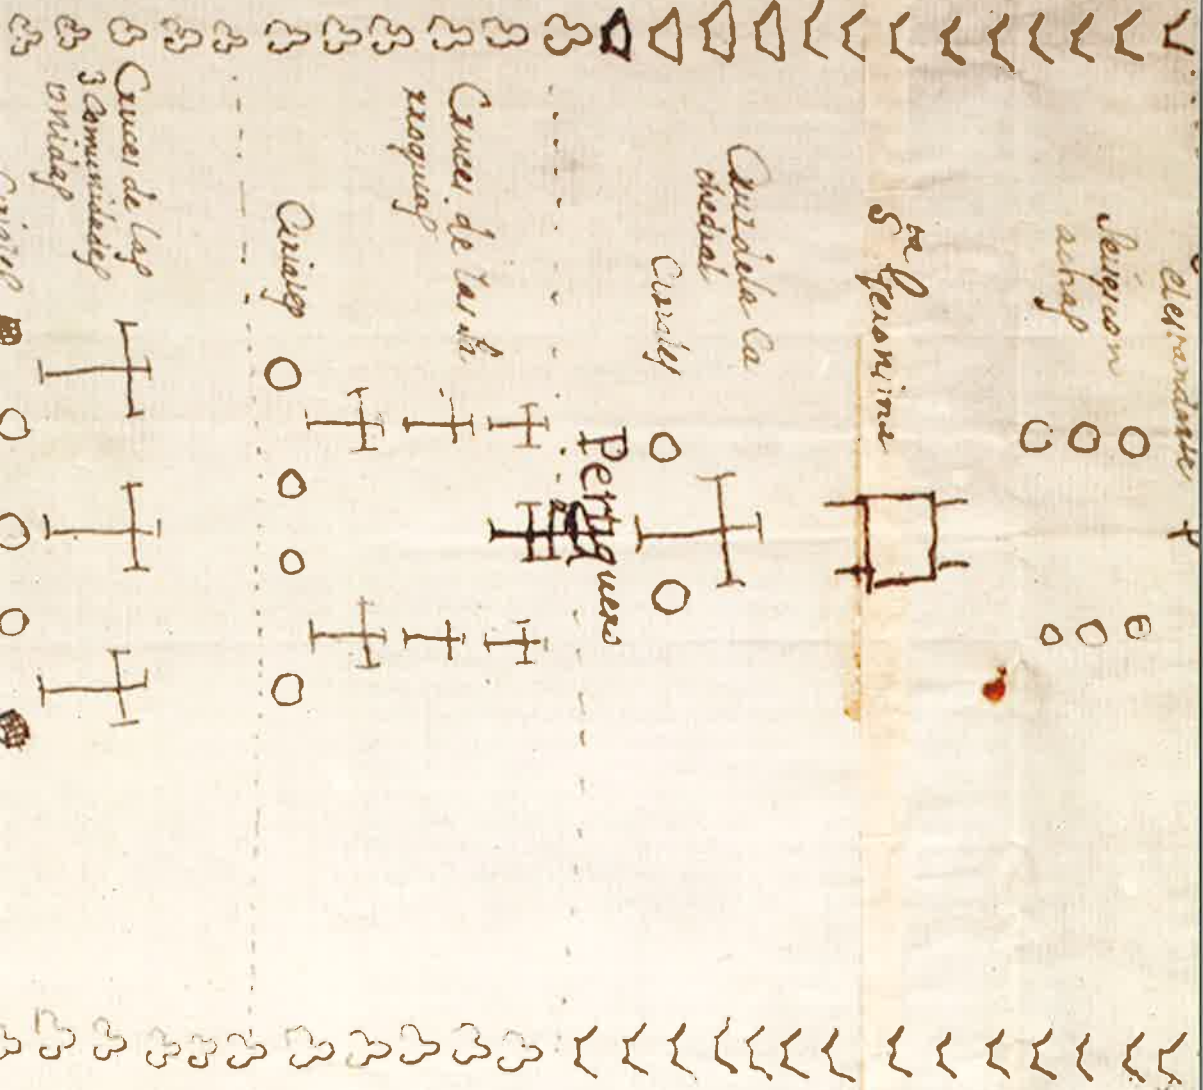 estandarte
achas
Sta Geronima
Cruz de la Ca
thedral
Ciriales
Pertiguero
Cruces de las
rroquias
Ciriales
Cruces de las
3 Comunidades
unidas